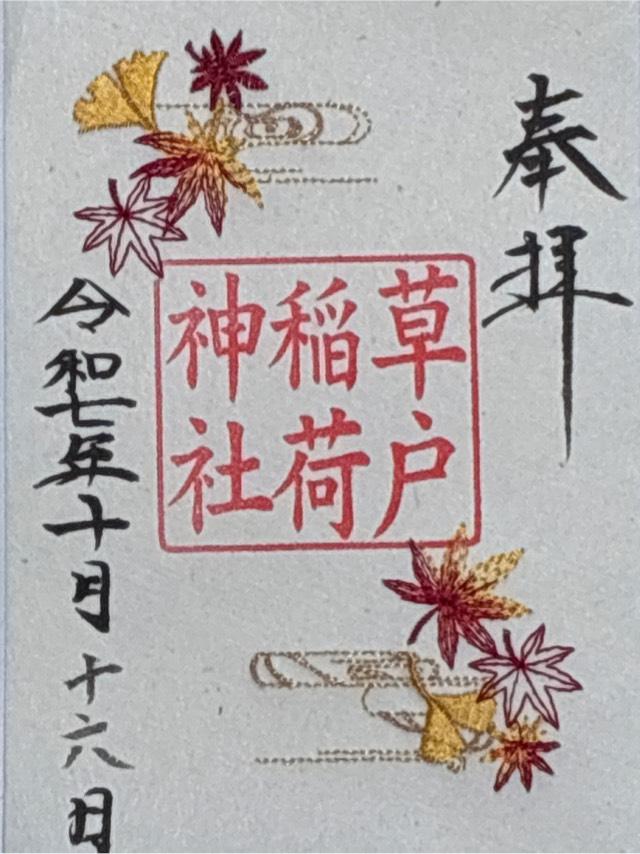 奉拝
草戸
稲荷
神社
令和七年十月十六日